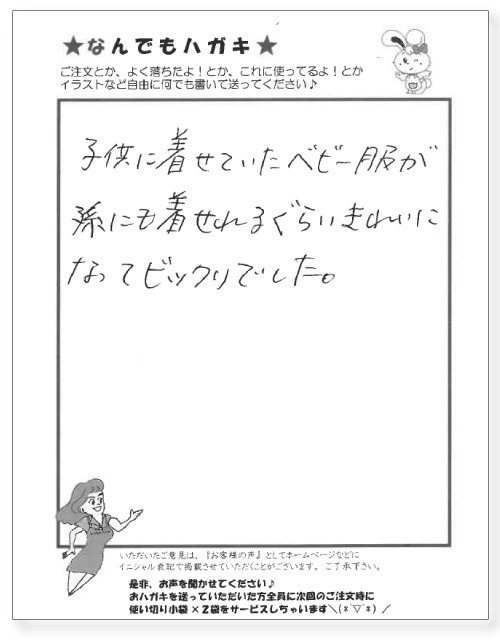 ★なんでもハガキ★
ご注文とか、よく落ちたよ!とか、これに使ってるよ!とか
イラストなど自由に何でも書いて送ってください♪
子供に着せていたベビー服が
孫にも着せれるぐらいきれいに
なってビックリでした。
いただいたご意見は、『お客様の声』としてホームページなどに
イニシャル表記で掲載させていただくことがございます。ご了承下さい。
是非、お声を聞かせてください♪
おハガキを送っていただいた方全員に次回のご注文時に
使い切り小袋×2袋をサービスしちゃいます＼(*´▽`*)／